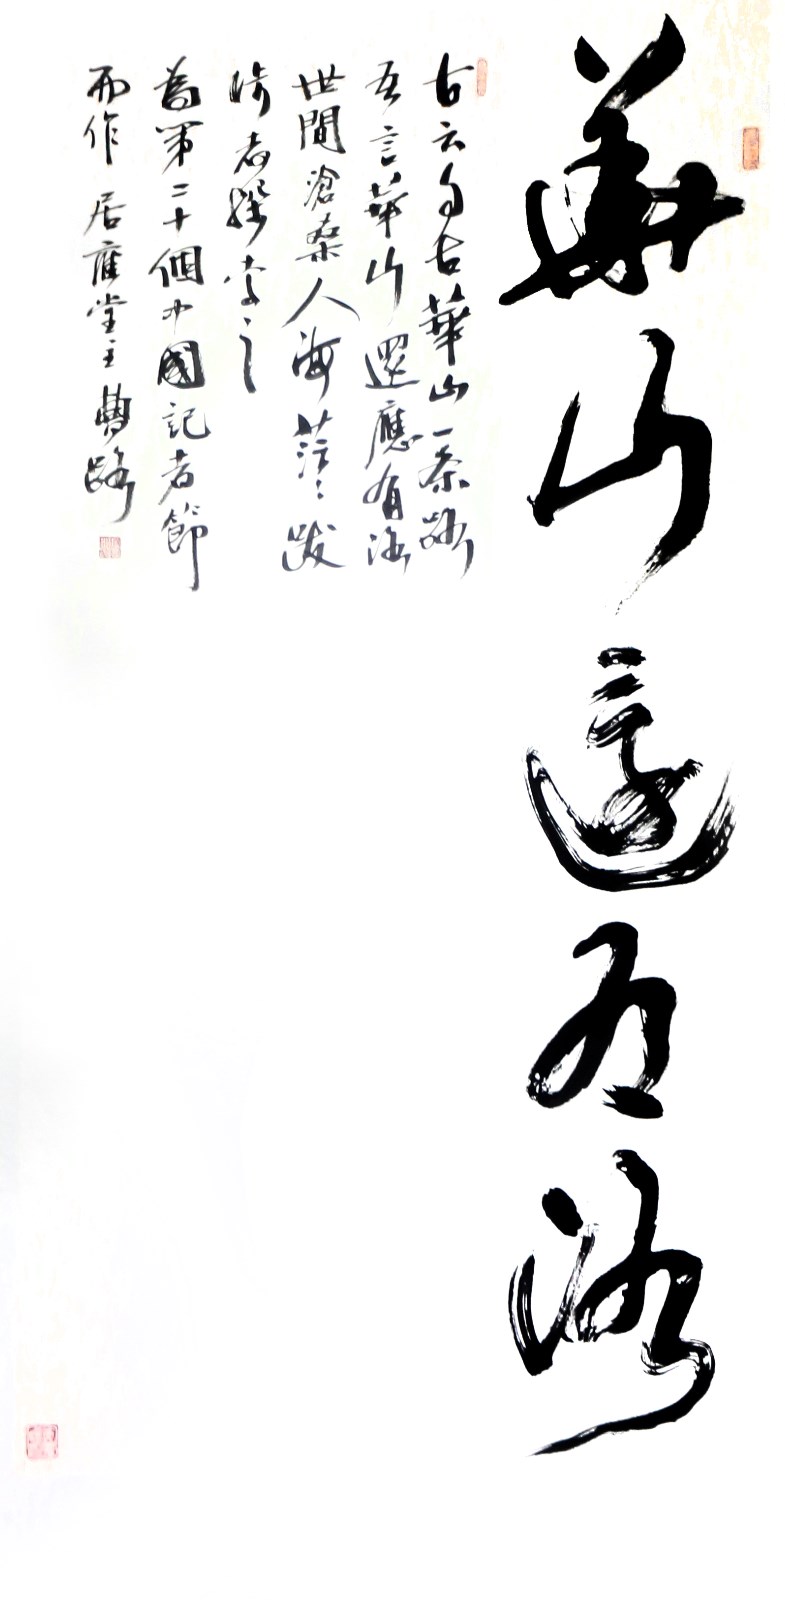 華山還有路
古云自古華山一条路
吾言華山還應有路
世間滄桑人海茫茫跋
涉者探之
為第二十個中國記者節
而作 居堂主曹路